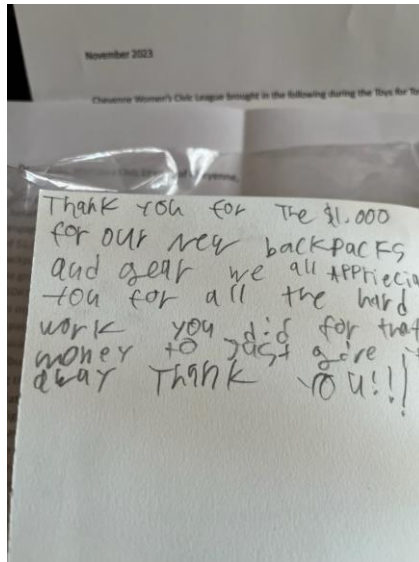 November 2023
Cheyenne Women's Civic League brought in the following during the Toys for
Thank you for The $1,000
for our new backpacks
and gear we all APPrecia
you for all the hard
work you did for that
money to just give
away Thank YOU!!!